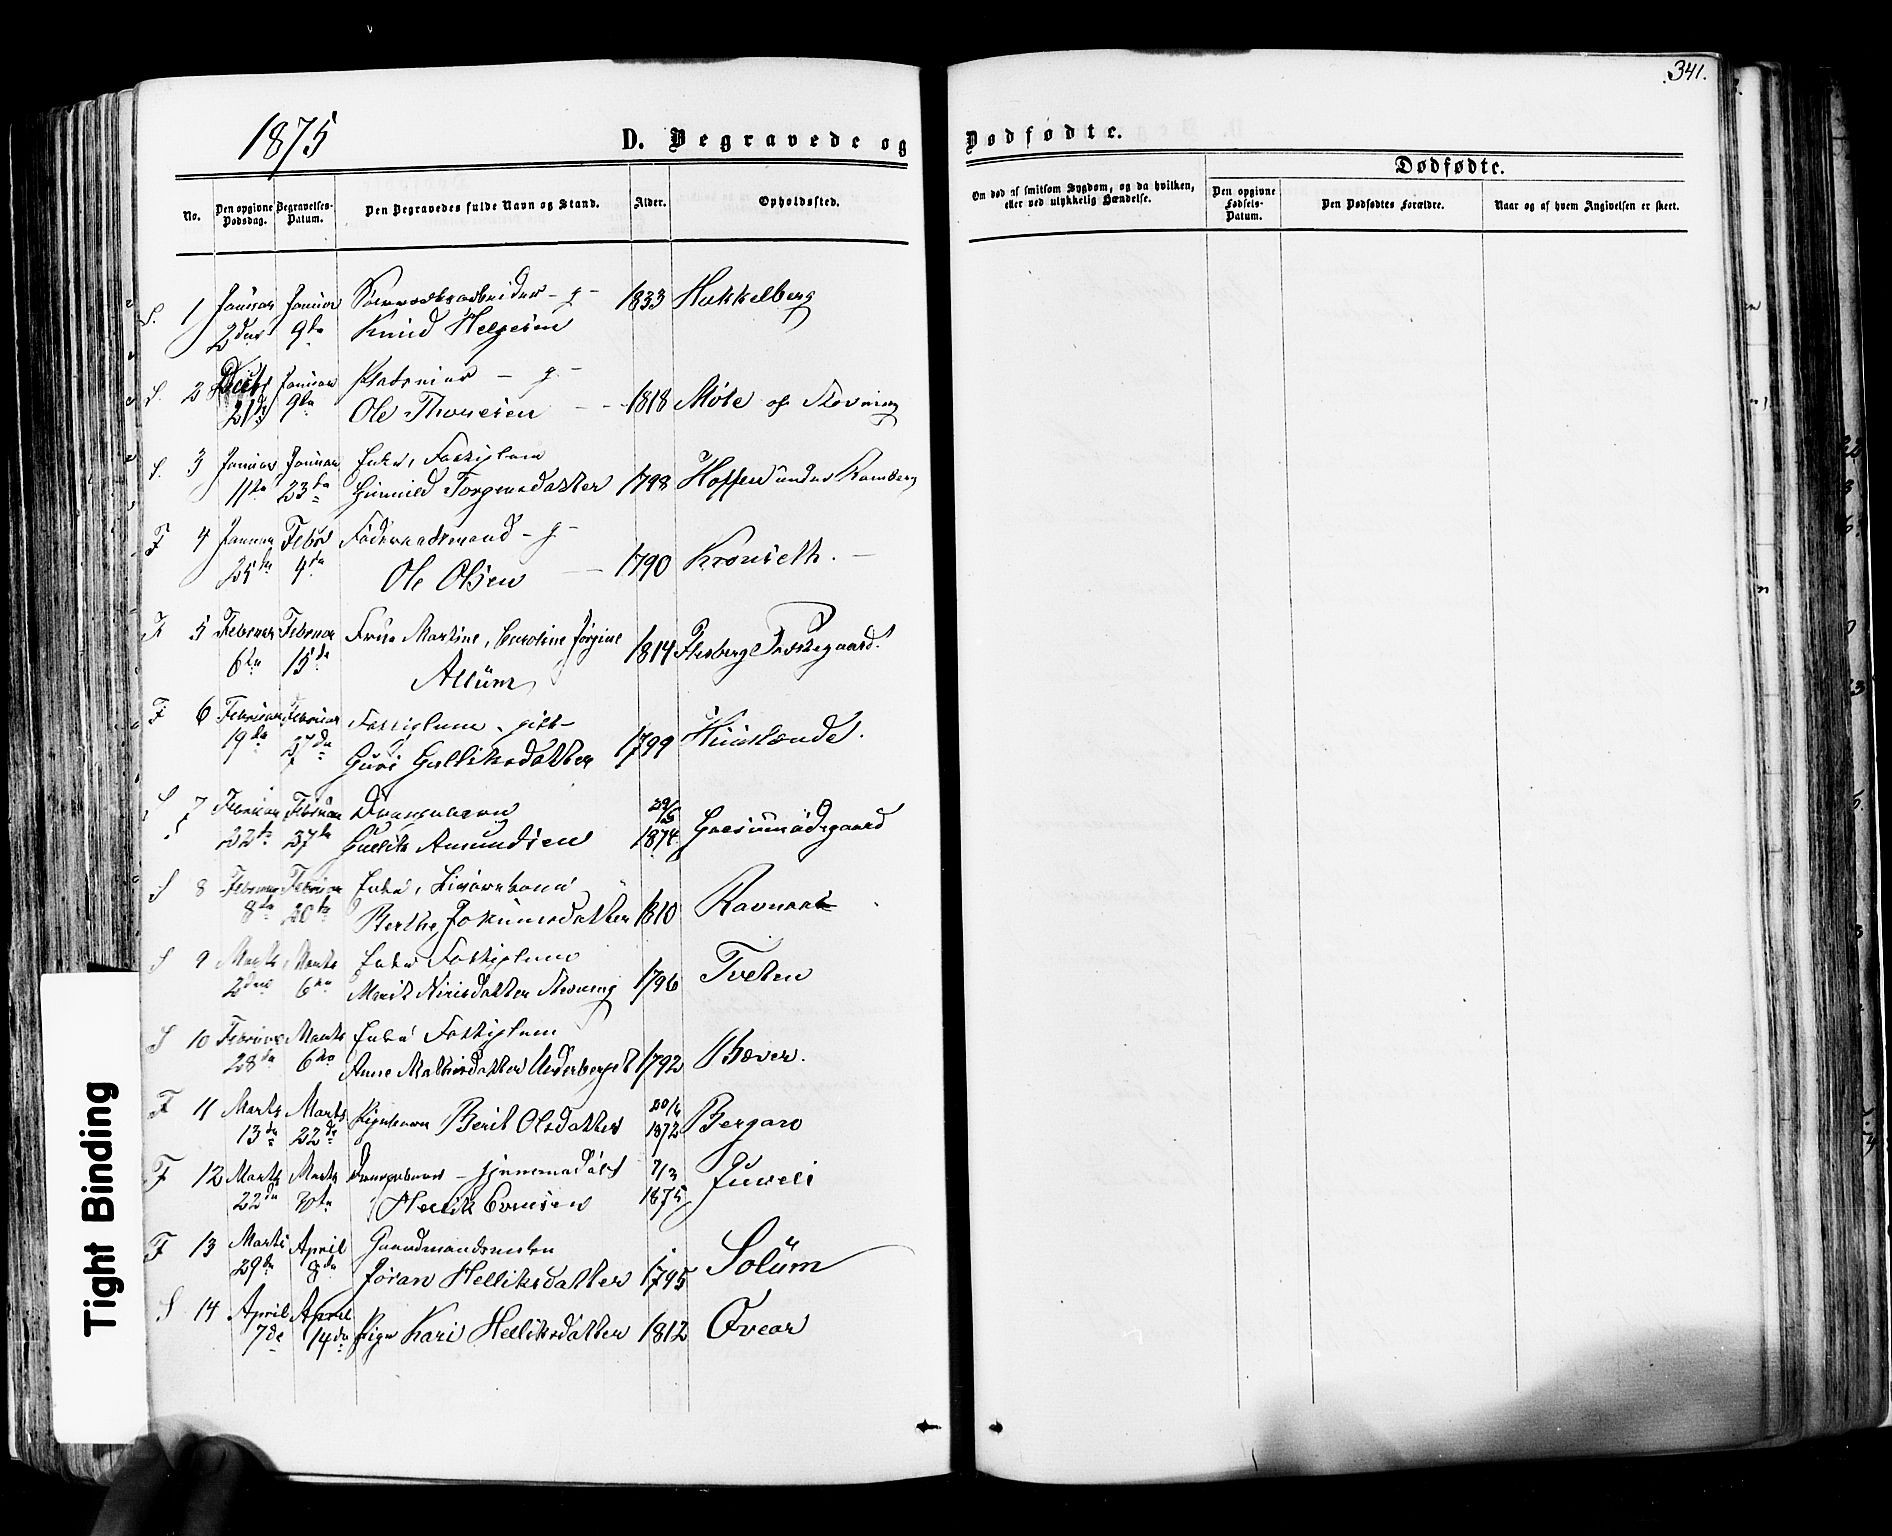 .341.
1875
D. Begravede og Dødfødte.
Dødfødte.
No.
Den opgivne Dødsdag.
Begravelses-Datum.
Den Begravedes fulde Navn og Stand.
Alder.
Opholdssted.
Om død af smitsom Sygdom, og da hvilken, eller ved ulykkelig Hændelse.
Den opgivne Fødsels-Datum.
Den Dødfødtes Forældre.
Naar og af hvem Angivelsen er skeet.
S. 1 Januar Januar - g - 1833 Hukkelberg
2den 9de Knud Helgesen
S. 2 Decbr Januar Pladsmand - g -
21de 9de Ole Thoresen - - 1818 Møbe af Stevning
S. 3 Januar Januar Enke, Fattiglem
11te 23de Gunnild Torgersdatter 1798 Hoffen under Ramberg
F 4 Januar Febr Føderaadsmand - g -
25de 4de Ole Olsen 1790 Kronseth. -
F 5 Februar Februar Frue Martine, Caroline Jørgine 1814 Flesberg Præstegaard.
6te 15de Allum
F 6 Februar Februar Fattiglem - gift -
19de 27de Guri Gulliksdatter 1799
S 7 Februar Februar Drengebarn 29/5
22de 27de Gullik Amundsen 1874.
S 8 Februar Februar Enke,
8de 20de Berthe Jokumsdatter 1810 Ravnaas
S 9 Marts Marts Enke Fattiglem
2den 6te Marit Nirisdatter Stevning 1796 Tveten
S 10 Februar Marts Enke Fattiglem
28de 6te Anne Mathisdatter Underberget 1792 Bæver.
F 11 Marts Marts Pigebarn Berit Olsdatter 20/6 Bergaro
13de 22de 1872
F 12 Marts Marts Drengebarn - hjemmedøbt 7/3 Juveli
22de 30te Hellik Evensen 1875
F 13 Marts April Gaardmandsenke Solum
29de 8de Jøran Helliksdatter 1795
S 14 April April
7de 14de Pige Kari Helliksdatter 1812 Øvear
Tight Binding